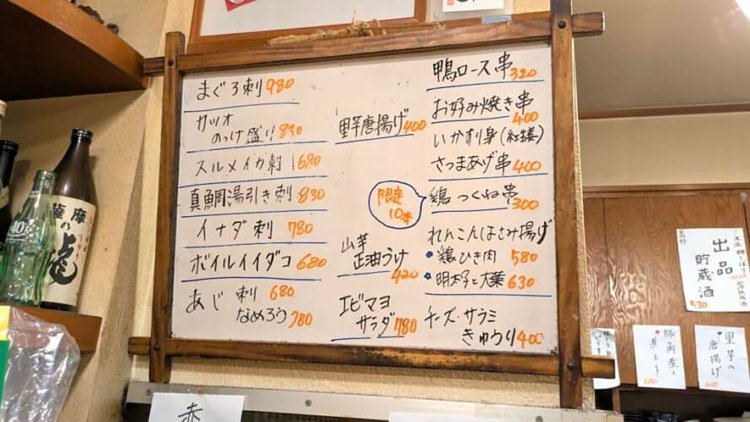 まぐろ刺 980
カツオ
のっけ盛り 830
スルメイカ刺 680
真鯛湯引き刺 830
イナダ刺 780
ボイルイイダコ 680
あじ 刺 680
なめろう 780
里芋唐揚げ 400
限定
10本
山芋
正油つけ 420
エビマヨ
サラダ 780
鴨ロース串 320
お好み焼き串 400
いかすり身(紅生姜)
さつまあげ串 400
鶏つくね串 300
れんこんはさみ揚げ
鶏ひき肉 580
明太子と大葉 630
チーズ・サラミ
きゅうり 400
薩摩
の
出品
貯蔵酒
豚角煮
里芋の
唐揚げ
赤